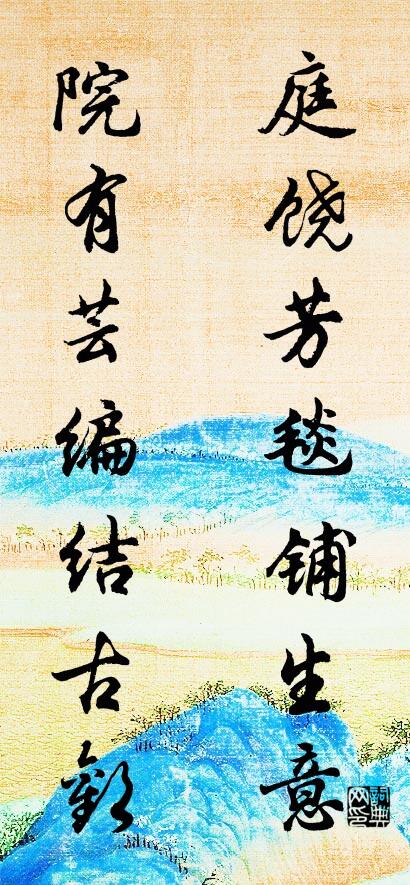 庭饶芳毯铺生意
院有芸编结古欢
词典网印